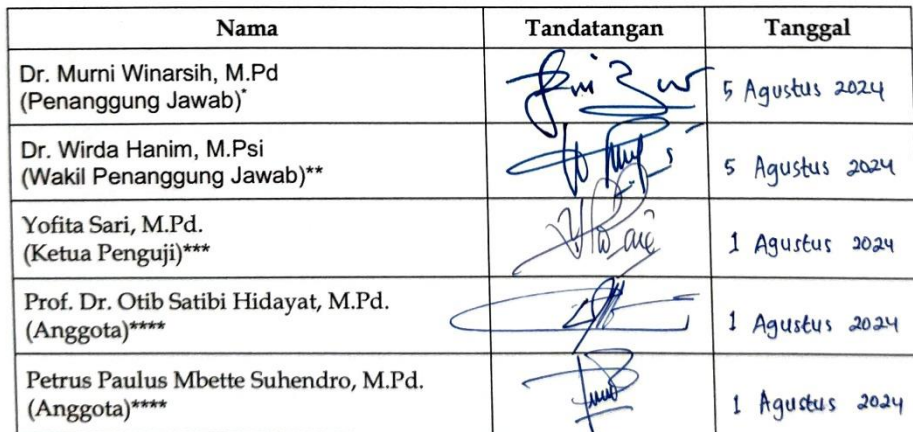 Nama Tandatangan Tanggal
Dr. Murni Winarsih, M.Pd
(Penanggung Jawab)* 5 Agustus 2024
Dr. Wirda Hanim, M.Psi
(Wakil Penanggung Jawab)** 5 Agustus 2024
Yofita Sari, M.Pd.
(Ketua Penguji)*** 1 Agustus 2024
Prof. Dr. Otib Satibi Hidayat, M.Pd.
(Anggota)**** 1 Agustus 2024
Petrus Paulus Mbette Suhendro, M.Pd.
(Anggota)**** 1 Agustus 2024